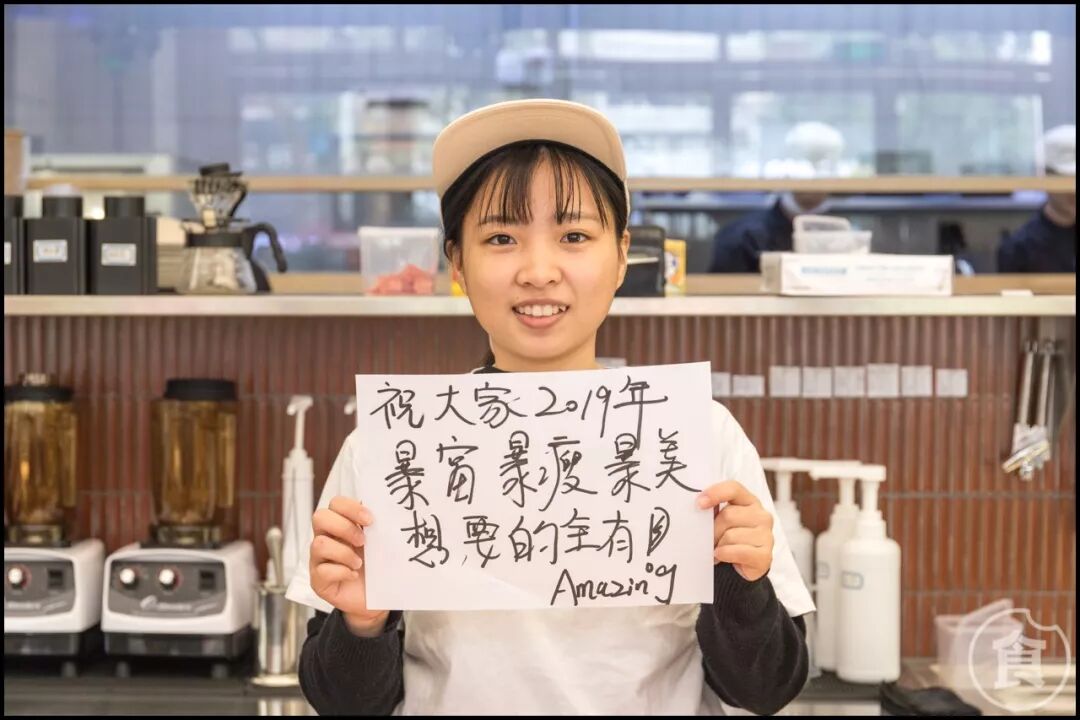 祝大家2019年
暴富暴瘦暴美
想要的全有
Amazing
食